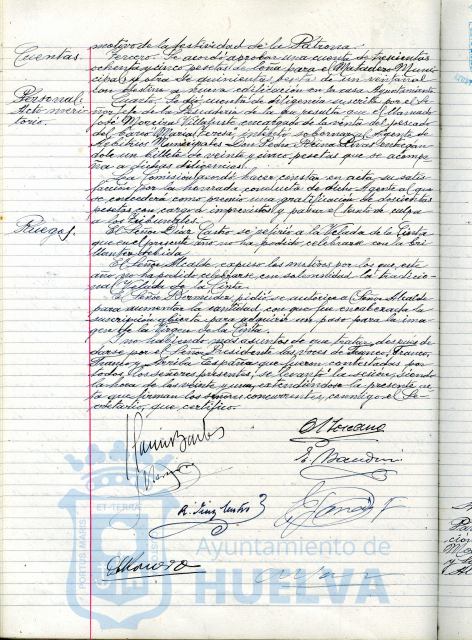 motivo de la festividad de la Patrona.
Cuentas. Tercero. Se acordó aprobar una cuenta de trescientas
ochenta y cinco pesetas de leña para el Matadero Muni-
cipal y otra de quinientas pesetas de un ventanal
con destino a nueva edificación en la casa Ayuntamiento
Personal. Cuarto. Se dió cuenta de diligencia suscrita por el Se-
Acto meri- ñor de la que resulta que el llamado
torio. José Moreno Villafuerte, encargado de la venta del pescado
del barco María Teresa, intentó sobornar al Agente de
Arbitrios Municipales Don Pedro Reina Rivas entregán-
dole un billete de veinte y cinco pesetas que se acompa-
ña a dichas diligencias.
La Comisión acordó hacer constar en acta su satis-
facción por la honrada conducta de dicho Agente al que
se concederá como premio una gratificación de doscientas
pesetas con cargo a imprevistos y pasar el tanto de culpa
a los Tribunales.
Ruegos. El Señor Díaz Castro se refirió a la Velada de la Cinta
que en el presente año no ha podido celebrarse con la bri-
llantez debida.
El Señor Alcalde expuso los motivos por los que este
año no ha podido celebrarse con solemnidad la tradicio-
nal Velada de la Cinta.
El Señor Bermúdez pidió se autorice al Señor Alcalde
para aumentar la cantidad con que fue encabezada la
suscripción abierta para adquirir un paso para la ima-
gen de la Virgen de la Cinta.
Y no habiendo más asuntos de que tratar, después de
darse por el Señor Presidente las voces de Franco, Franco,
Franco y Arriba España que fueron contestadas por
todos los señores presentes, se levantó la sesión, siendo
la hora de las veinte y una, extendiéndose la presente ac-
ta que firman los señores concurrentes, conmigo el Se-
cretario, que certifico.
ET TERRÆ
PORTUS MARIS
Ayuntamiento de
HUELVA